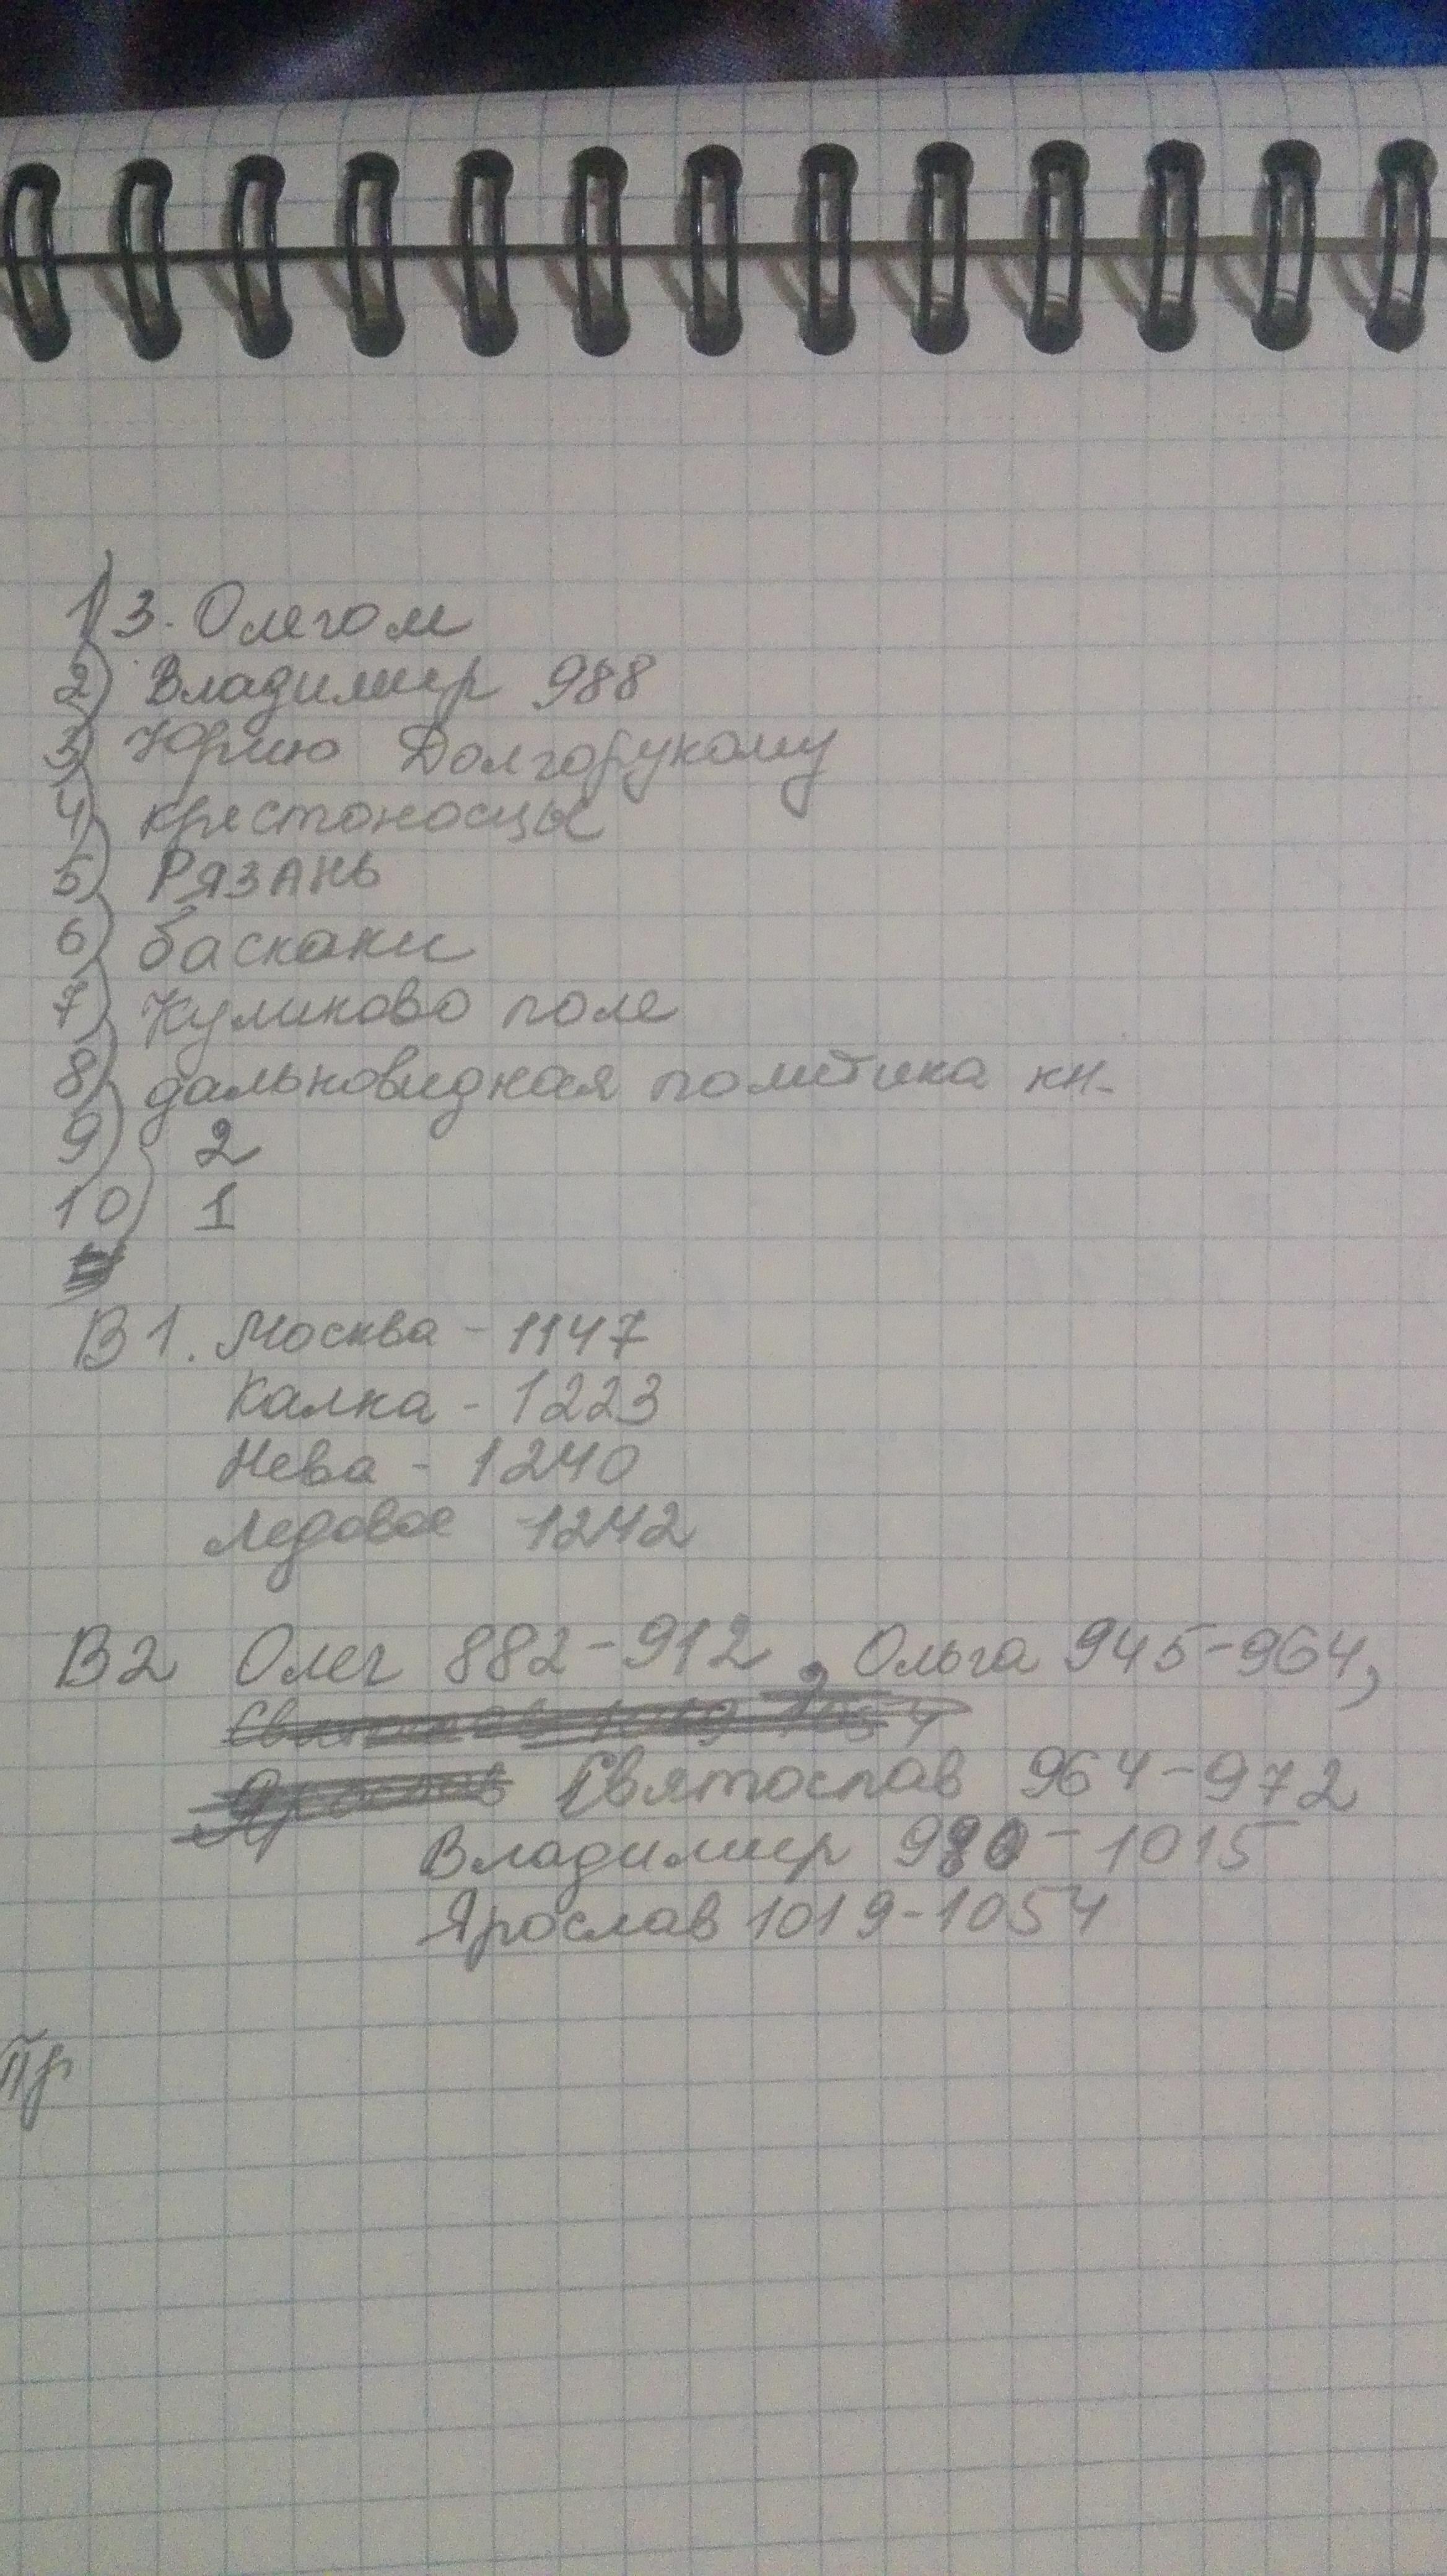 1) 3. Олегом
2) Владимир 988
3) Юрию Долгорукому
4) крестоносцы
5) Рязань
6) баскаки
7) Куликово поле
8) дальновидная политика кн.
9) 2
10) 1
В1. Москва - 1147
Калка - 1223
Нева - 1240
Ледовое 1242
В2 Олег 882-912, Ольга 945-964,
Святослав 964-972
Владимир 980-1015
Ярослав 1019-1054
Пр